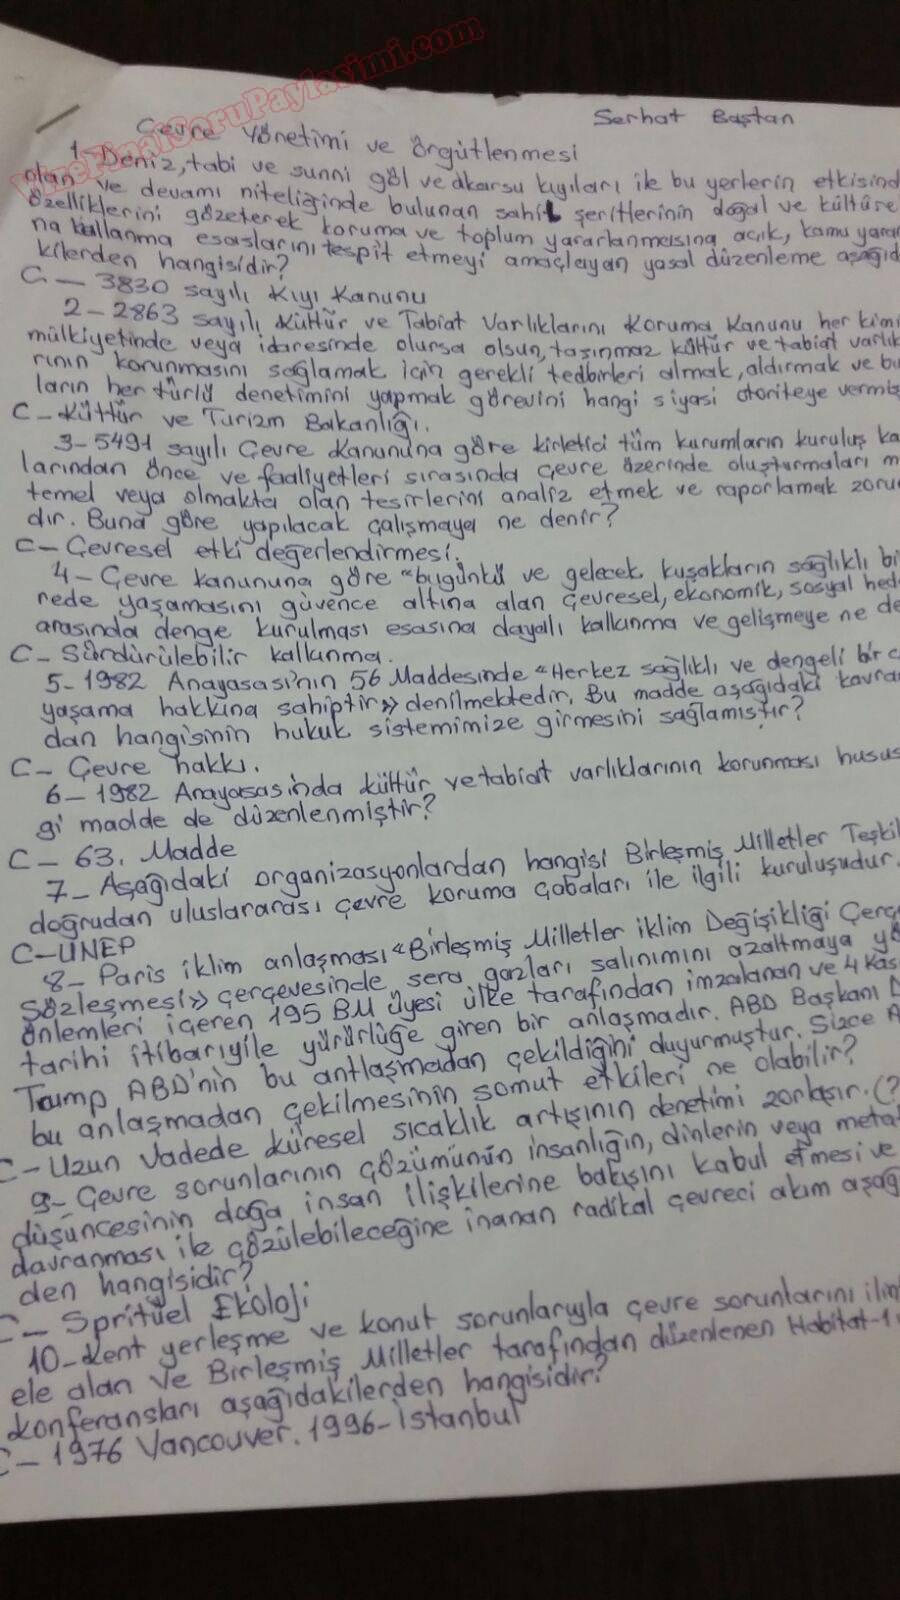 VizeFinalSoruPaylasimi.com
Serhat Baştan
Çevre Yönetimi ve Örgütlenmesi
1- Deniz, tabi ve sunni göl ve akarsu kıyıları ile bu yerlerin etkisind
olan ve devamı niteliğinde bulunan sahil şeritlerinin doğal ve kültüre
özelliklerini gözeterek koruma ve toplum yararlanmasına açık, kamu yara
na kullanma esaslarını tespit etmeyi amaçlayan yasal düzenleme aşağıd
kilerden hangisidir?
C- 3830 sayılı Kıyı Kanunu
2- 2863 sayılı Kültür ve Tabiat Varlıklarını Koruma Kanunu her kimi
mülkiyetinde veya idaresinde olursa olsun, taşınmaz kültür ve tabiat varlık
rının korunmasını sağlamak için gerekli tedbirleri almak, aldırmak ve bu
ların her türlü denetimini yapmak görevini hangi siyasi otoriteye vermiş
C- Kültür ve Turizm Bakanlığı.
3- 5491 sayılı Çevre Kanununa göre kirletici tüm kurumların kuruluş ka
larından önce ve faaliyetleri sırasında çevre üzerinde oluşturmaları m
temel veya olmakta olan tesirlerini analiz etmek ve raporlamak zorun
dır. Buna göre yapılacak çalışmaya ne denir?
C- Çevresel etki değerlendirmesi.
4- Çevre kanununa göre "bugünkü ve gelecek kuşakların sağlıklı bi
rede yaşamasını güvence altına alan çevresel, ekonomik, sosyal hed
arasında denge kurulması esasına dayalı kalkınma ve gelişmeye ne de
C- Sürdürülebilir kalkınma.
5- 1982 Anayasası'nın 56 Maddesinde "Herkez sağlıklı ve dengeli bir ç
yaşama hakkına sahiptir" denilmektedir. Bu madde aşağıdaki kavra
dan hangisinin hukuk sistemimize girmesini sağlamıştır?
C- Çevre hakkı.
6- 1982 Anayasasında kültür ve tabiat varlıklarının korunması husus
gi madde de düzenlenmiştir?
C- 63. Madde
7- Aşağıdaki organizasyonlardan hangisi Birleşmiş Milletler Teşkil
doğrudan uluslararası çevre koruma çabaları ile ilgili kuruluşudur.
C- UNEP
8- Paris iklim anlaşması "Birleşmiş Milletler iklim Değişikliği Çerçe
Sözleşmesi" çerçevesinde sera gazları salınımını azaltmaya yö
önlemleri içeren 195 BM üyesi ülke tarafından imzalanan ve 4 Kas
tarihi itibarıyile yürürlüğe giren bir anlaşmadır. ABD Başkanı D
Trump ABD'nin bu antlaşmadan çekildiğini duyurmuştur. Sizce A
bu anlaşmadan çekilmesinin somut etkileri ne olabilir?
C- Uzun Vadede küresel sıcaklık artışının denetimi zorlaşır. (?
9- Çevre sorunlarının çözümünün insanlığın, dinlerin veya metaf
düşüncesinin doğa insan ilişkilerine bakışını kabul etmesi ve
davranması ile çözülebileceğine inanan radikal çevreci akım aşağ
den hangisidir?
C- Spritüel Ekoloji
10- Kent yerleşme ve konut sorunlarıyla çevre sorunlarını ilin
ele alan ve Birleşmiş Milletler tarafından düzenlenen Habitat-1
konferansları aşağıdakilerden hangisidir?
C- 1976 Vancouver. 1996-İstanbul